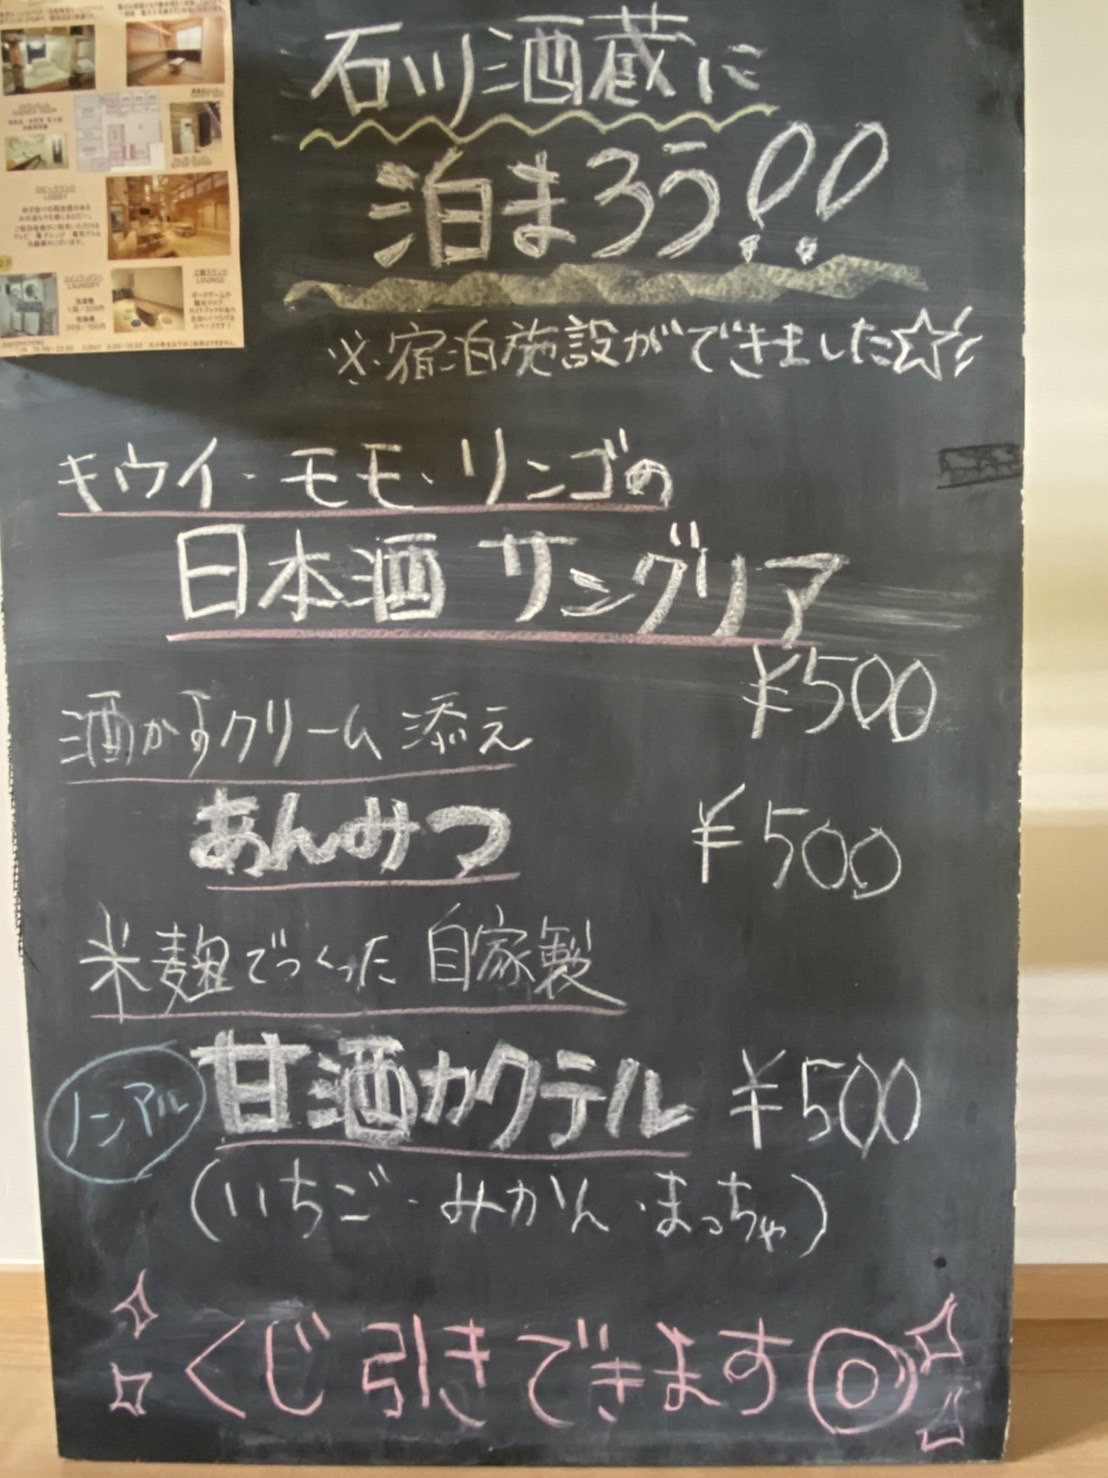 石川酒蔵に
泊まろう!!
※宿泊施設ができました☆!!
キウイ・モモ・リンゴの
日本酒 サングリア
¥500
酒かすクリーム 添え
あんみつ ¥500
米麹でつくった 自家製
ノンアル 甘酒カクテル ¥500
(いちご・みかん・まっちゃ)
くじ引きできます◎